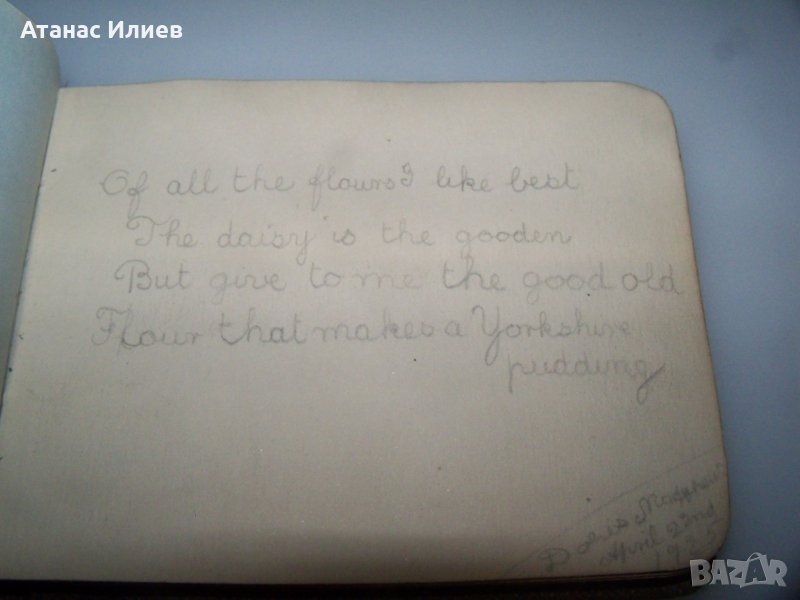 Атанас Илиев
Of all the flours I like best
The daisy is the gooden
But give to me the good old
Flour that makes a Yorkshire
pudding
Doris
April 22nd
1925
BAZAR